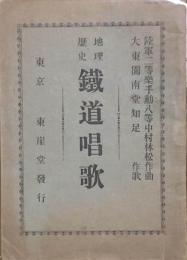 陸軍二等樂手勳八等中村林松作曲
大東園南堂知足 作歌
地理
歴史
鐵道唱歌
東京 東崖堂發行